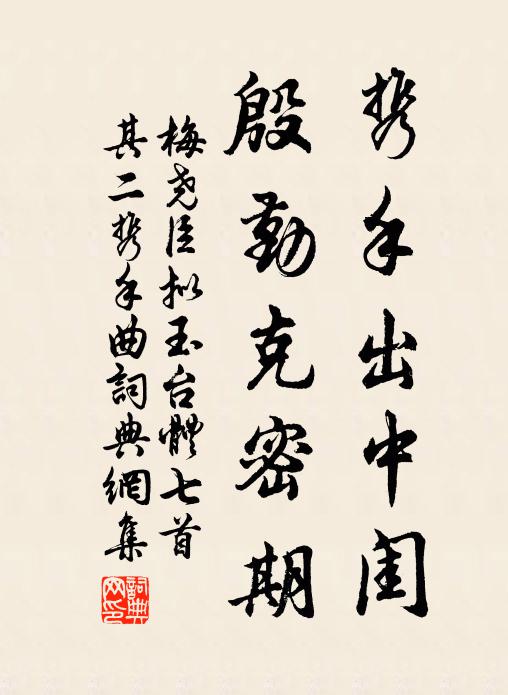 携手出中闺
殷勤克密期
梅尧臣拟玉台體七首
其二携手曲詞典網集
詞典网印